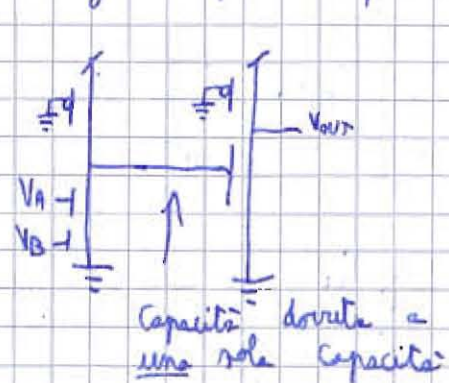 VOUT
VA
VB
Capacità dovuta a
una sola capacità